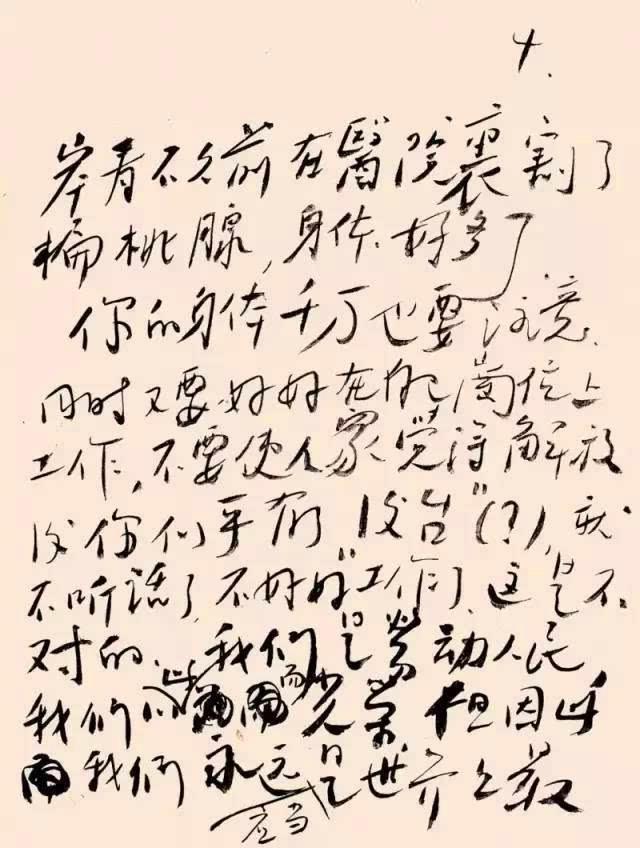 4.
岸青不久前在醫院裏割了
扁桃腺,身体好多了
你的身体千万也要注意.
同时又要好好在自己崗位上
工作,不要使人家觉得解放
后你们平有"后台"(?),就
不听話了,不好好工作了.这是不
对的.我们是劳动人民
我们以此而光荣但因此
而我们永远是世界上最
应当